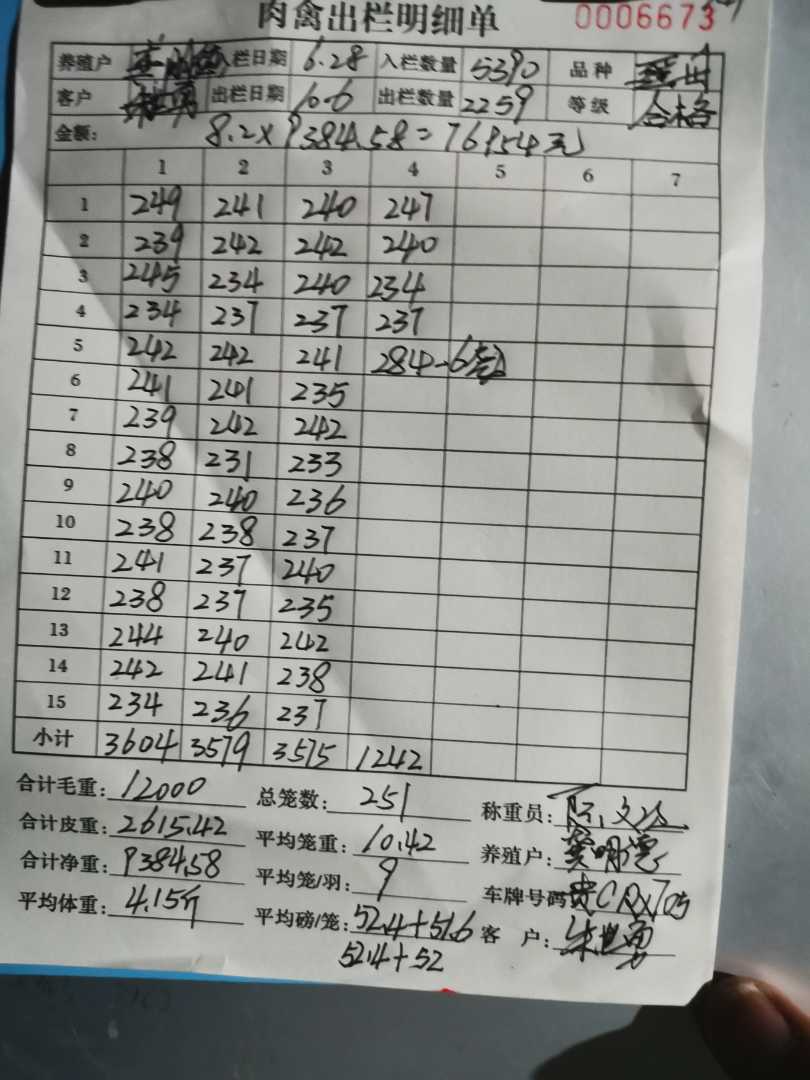 肉禽出栏明细单 0006673
养殖户 入栏日期 6.28 入栏数量 5390 品种
客户 出栏日期 10.6 出栏数量 2259 等级 合格
金额: 8.2×9384.58=76954元
1 2 3 4 5 6 7
1 249 241 240 247
2 239 242 242 240
3 245 234 240 234
4 234 237 237 237
5 242 242 241 284-6套
6 241 241 235
7 239 242 242
8 238 231 233
9 240 240 236
10 238 238 237
11 241 237 240
12 238 237 235
13 244 240 242
14 242 241 238
15 234 236 237
小计 3604 3579 3575 1242
合计毛重: 12000 总笼数: 251 称重员:
合计皮重: 2615.42 平均笼重: 10.42 养殖户:
合计净重: 9384.58 平均笼/羽: 9 车牌号码
平均体重: 4.15斤 平均磅/笼: 52.4+51.6 客户:
52.4+52